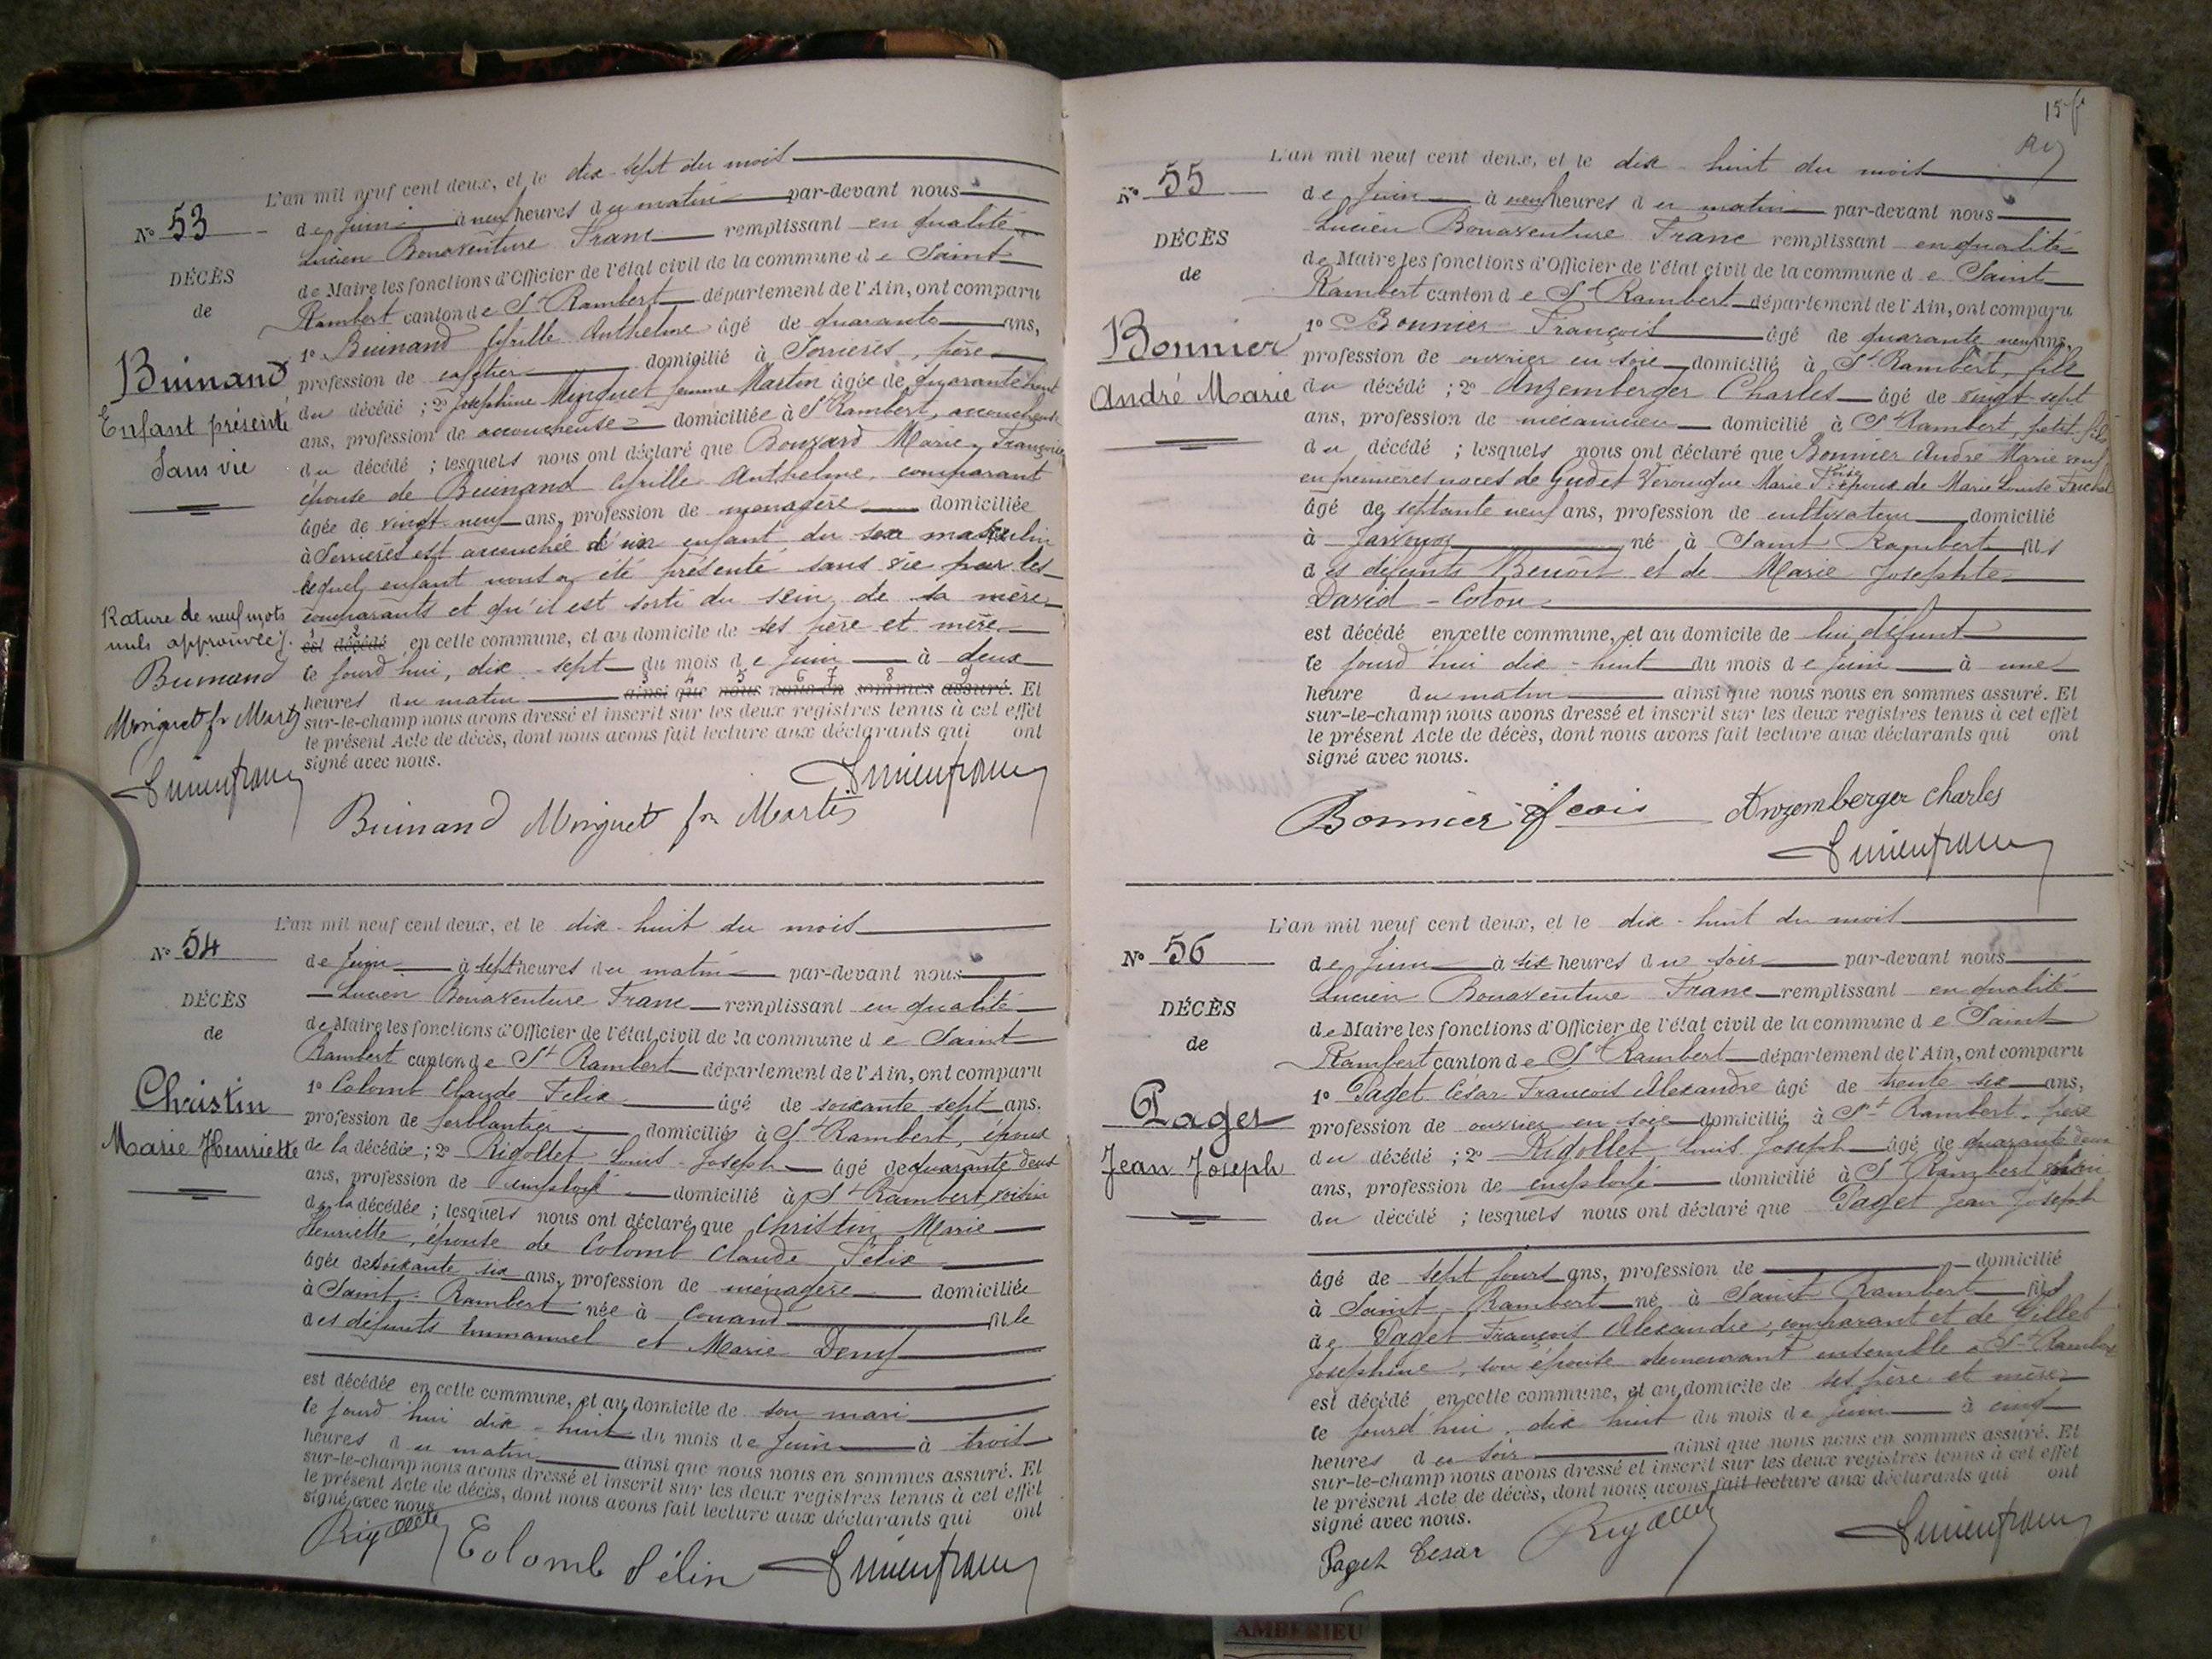 L'an mil neuf cent deux, et le dix-sept du mois
N° 53
de Juin à neuf heures du matin par-devant nous
Lucien Bonaventure Franc remplissant en qualité
DÉCÈS
de Maire les fonctions d'Officier de l'état civil de la commune de Saint
de
Rambert canton de St Rambert département de l'Ain, ont comparu
1° Buinand Cyrille Anthelme âgé de quarante ans,
Buinand
profession de domicilié à Serrières, père
Enfant présenté
du décédé ; 2° Joséphine Minguet femme Martin âgée de quarante huit
ans, profession de accoucheuse domiciliée à St Rambert, accoucheuse
Sans vie
du décédé ; lesquels nous ont déclaré que Bouzard Marie, Françoise
épouse de Buinand Cyrille Anthelme, comparant
âgée de vingt-neuf ans, profession de ménagère domiciliée
à Serrières est accouchée d'un enfant du sexe masculin
lequel enfant nous a été présenté sans vie par les
Rature de neuf mots
comparants et qu'il est sorti du sein de sa mère
nuls approuvée.
est décédé en cette commune, et au domicile de ses père et mère
Buinand
ce jourd'hui, dix-sept du mois de Juin à deux
heures du matin ainsi que nous nous en sommes assuré. Et
Minguet fe Martin
sur-le-champ nous avons dressé et inscrit sur les deux registres tenus à cet effet
le présent Acte de décès, dont nous avons fait lecture aux déclarants qui ont
signé avec nous.
Lucien franc
Lucien franc
Buinand Minguet fe Martin
L'an mil neuf cent deux, et le dix-huit du mois
N° 54
de Juin à sept heures du matin par-devant nous
Lucien Bonaventure Franc remplissant en qualité
DÉCÈS
de Maire les fonctions d'Officier de l'état civil de la commune de Saint
de
Rambert canton de St Rambert département de l'Ain, ont comparu
1° Colomb Claude Felix âgé de soixante sept ans.
Christin
profession de ferblantier domicilié à St Rambert, époux
Marie Henriette
de la décédée ; 2° Rigollet Louis Joseph âgé de quarante deux
ans, profession de employé domicilié à St Rambert, voisin
de la décédée ; lesquels nous ont déclaré que Christin Marie
Henriette, épouse de Colomb Claude Félix
âgée de soixante six ans, profession de ménagère domiciliée
à Saint-Rambert née à Conand fille
des défunts Emmanuel et Marie Demy
est décédée en cette commune, et au domicile de son mari
ce jourd'hui dix-huit du mois de Juin à trois
heures du matin ainsi que nous nous en sommes assuré. Et
sur-le-champ nous avons dressé et inscrit sur les deux registres tenus à cet effet
le présent Acte de décès, dont nous avons fait lecture aux déclarants qui ont
signé avec nous.
Rigollet Colomb Félix Lucien franc
15
L'an mil neuf cent deux, et le dix-huit du mois
N° 55
de Juin à neuf heures du matin par-devant nous
Lucien Bonaventure Franc remplissant en qualité
DÉCÈS
de Maire les fonctions d'Officier de l'état civil de la commune de Saint
de
Rambert canton de St Rambert département de l'Ain, ont comparu
1° Bonnier François âgé de quarante neuf ans,
Bonnier
profession de ouvrier en soie domicilié à St Rambert, fils
André Marie
du décédé ; 2° Anzemberger Charles âgé de vingt-sept
ans, profession de mécanicien domicilié à St Rambert, petit fils
du décédé ; lesquels nous ont déclaré que Bonnier André Marie veuf
en premières noces de Gudet Véronique Marie époux de Marie Louise
âgé de septante neuf ans, profession de cultivateur domicilié
à Javornoz né à Saint Rambert fils
des défunts Benoit et de Marie Josephte
David-Colon
est décédé en cette commune, et au domicile de lui défunt
ce jourd'hui dix-huit du mois de Juin à une
heure du matin ainsi que nous nous en sommes assuré. Et
sur-le-champ nous avons dressé et inscrit sur les deux registres tenus à cet effet
le présent Acte de décès, dont nous avons fait lecture aux déclarants qui ont
signé avec nous.
Bonnier fcois Anzemberger Charles
Lucien franc
L'an mil neuf cent deux, et le dix-huit du mois
N° 56
de Juin à six heures du soir par-devant nous
Lucien Bonaventure Franc remplissant en qualité
DÉCÈS
de Maire les fonctions d'Officier de l'état civil de la commune de Saint
de
Rambert canton de St Rambert département de l'Ain, ont comparu
1° Paget César François Alexandre âgé de trente six ans,
Paget
profession de ouvrier en soie domicilié à St Rambert, père
Jean Joseph
du décédé ; 2° Rigollet Louis Joseph âgé de quarante deux
ans, profession de employé domicilié à St Rambert voisin
du décédé ; lesquels nous ont déclaré que Paget Jean Joseph
âgé de sept jours ans, profession de domicilié
à Saint-Rambert né à Saint Rambert fils
de Paget François Alexandre, comparant et de Gillet
Joséphine, son épouse demeurant ensemble à St Rambert
est décédé en cette commune, et au domicile de ses père et mère
ce jourd'hui, dix huit du mois de Juin à cinq
heures du soir ainsi que nous nous en sommes assuré. Et
sur-le-champ nous avons dressé et inscrit sur les deux registres tenus à cet effet
le présent Acte de décès, dont nous avons fait lecture aux déclarants qui ont
signé avec nous.
Paget Cesar Rigollet Lucien franc
AMBERIEU